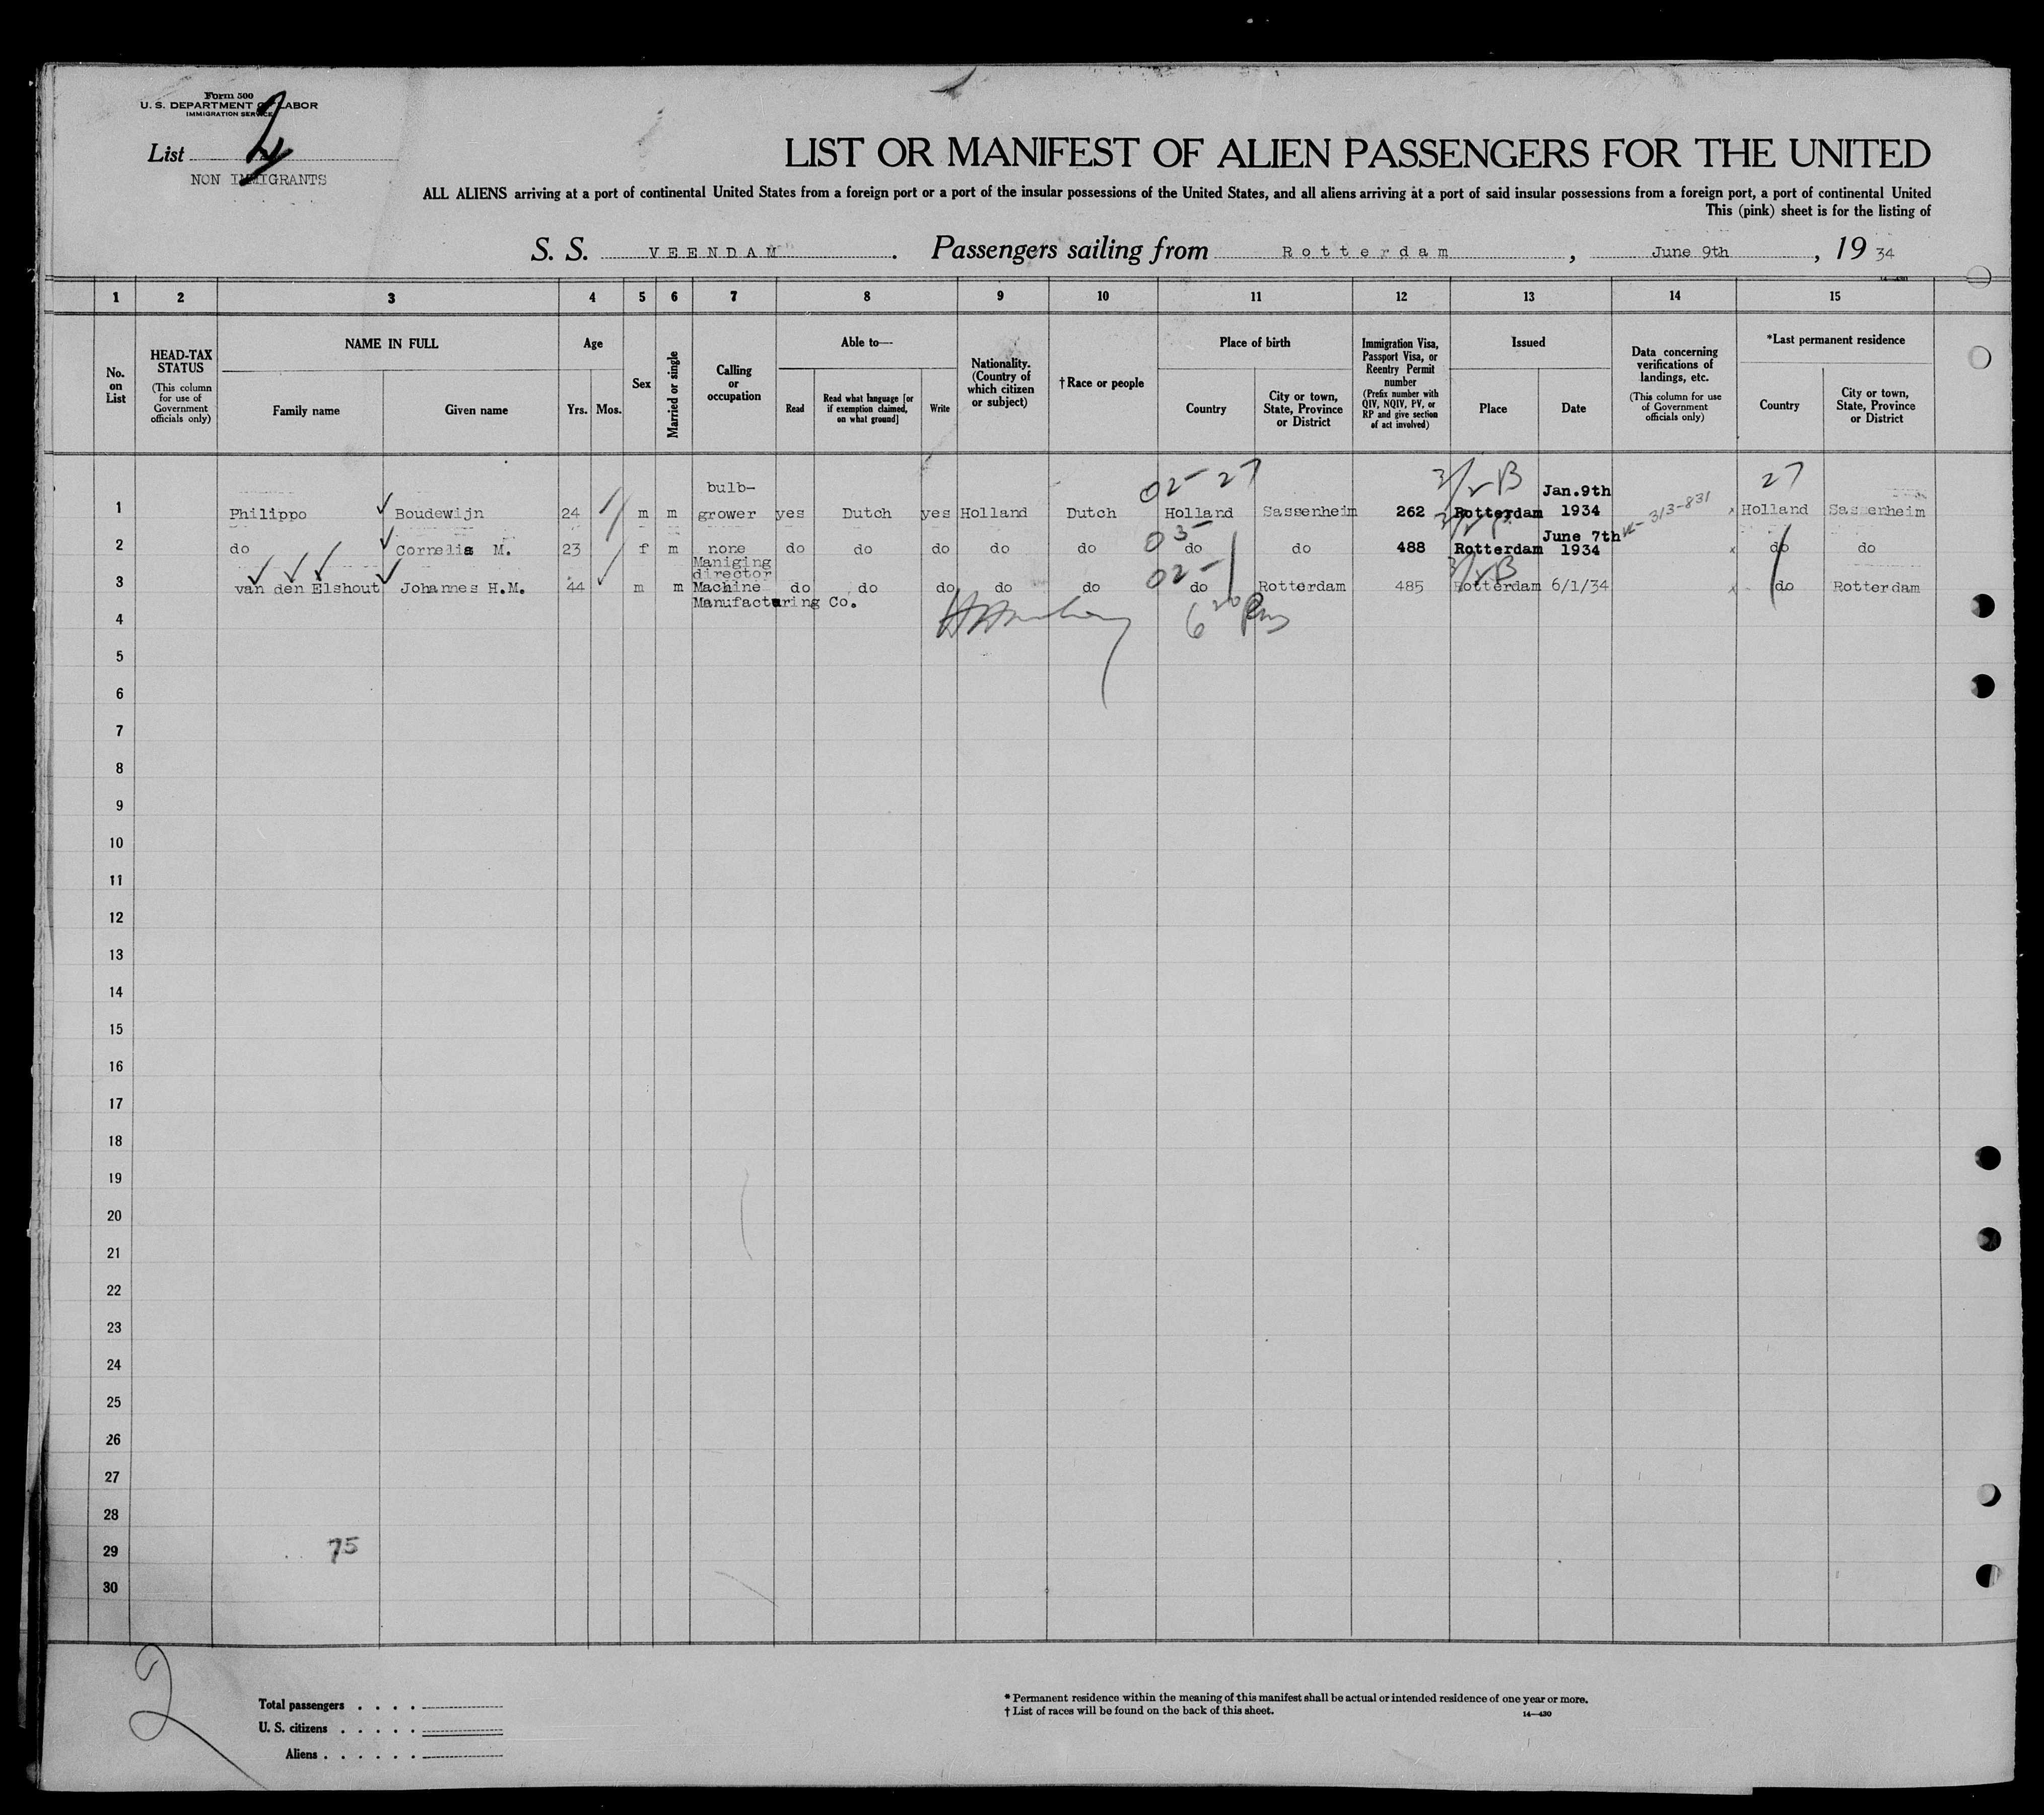 Form 500
U. S. DEPARTMENT OF LABOR
IMMIGRATION SERVICE
List 2
NON IMMIGRANTS
LIST OR MANIFEST OF ALIEN PASSENGERS FOR THE UNITED
ALL ALIENS arriving at a port of continental United States from a foreign port or a port of the insular possessions of the United States, and all aliens arriving at a port of said insular possessions from a foreign port, a port of continental United
This (pink) sheet is for the listing of
S. S. VEENDAM . Passengers sailing from Rotterdam , June 9th , 19 34
1 2 3 4 5 6 7 8 9 10 11 12 13 14 15
No. on List
HEAD-TAX STATUS
(This column for use of Government officials only)
NAME IN FULL
Family name Given name
Age
Yrs. Mos.
Sex
Married or single
Calling or occupation
Able to—
Read
Read what language [or if exemption claimed, on what ground]
Write
Nationality. (Country of which citizen or subject)
†Race or people
Place of birth
Country
City or town, State, Province or District
Immigration Visa, Passport Visa, or Reentry Permit number
(Prefix number with QIV, NQIV, PV, or RP and give section of act involved)
Issued
Place Date
Data concerning verifications of landings, etc.
(This column for use of Government officials only)
*Last permanent residence
Country
City or town, State, Province or District
02-27 3/2 B 27
1 Philippo Boudewijn 24 m m bulb-grower yes Dutch yes Holland Dutch Holland Sassenheim 262 Rotterdam Jan.9th 1934 313-831 Holland Sassenheim
03-
2 do Cornelia M. 23 f m none do do do do do do do 488 Rotterdam June 7th 1934 do do
02- 3/2 B
3 van den Elshout Johannes H.M. 44 m m Maniging director Machine Manufacturing Co. do do do do do do Rotterdam 485 Rotterdam 6/1/34 do Rotterdam
4
5
6
7
8
9
10
11
12
13
14
15
16
17
18
19
20
21
22
23
24
25
26
27
28
29 75
30
2
Total passengers . . . .
U. S. citizens . . . . .
Aliens . . . . . .
* Permanent residence within the meaning of this manifest shall be actual or intended residence of one year or more.
† List of races will be found on the back of this sheet.
14—430